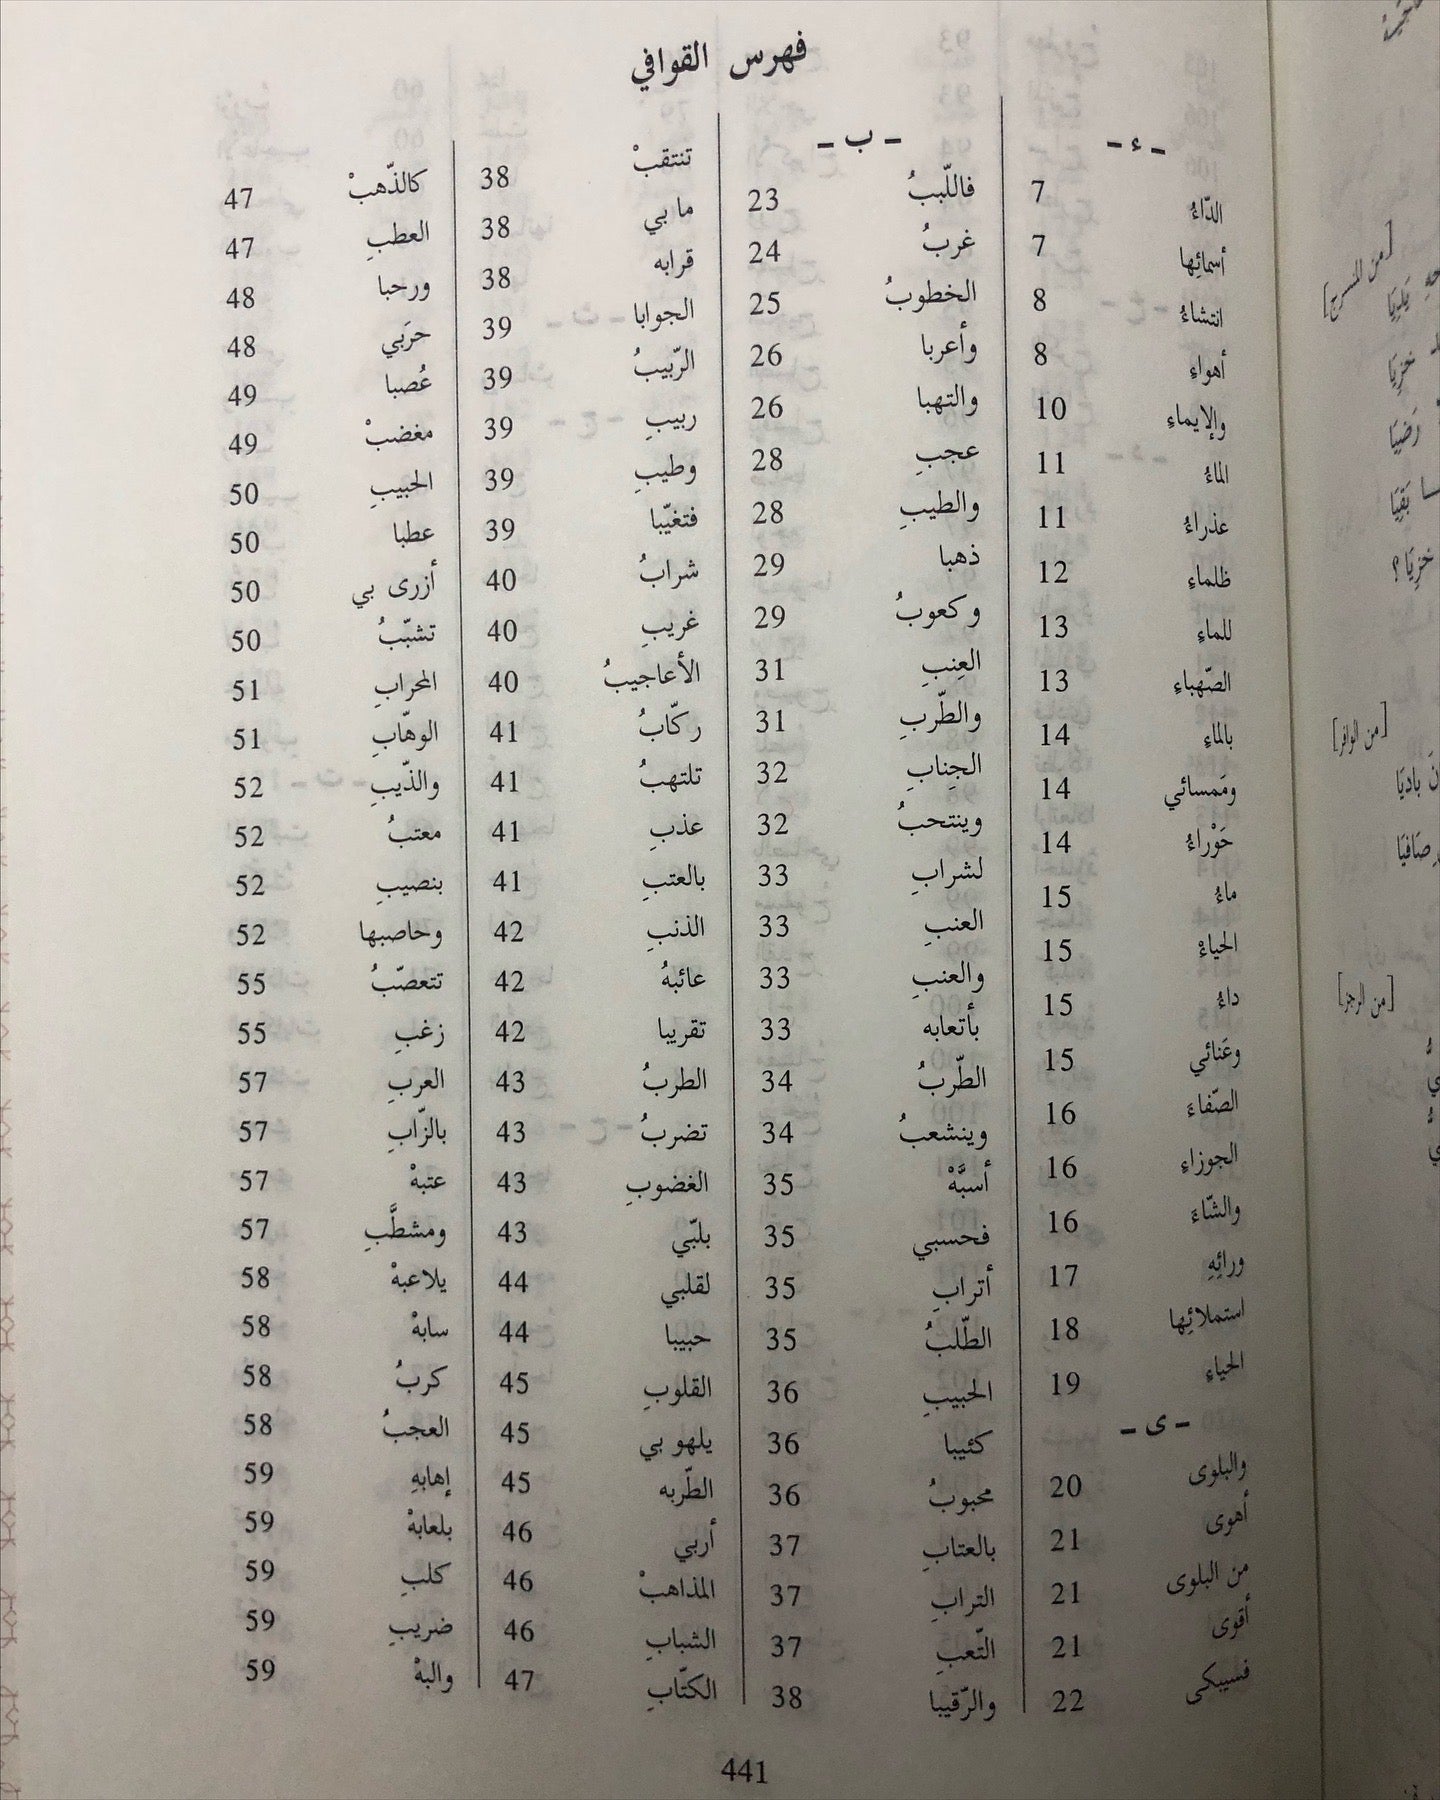 فهرس القوافي
- ء -
الدّاءُ 7
أسمائِها 7
انتشاءُ 8
أهواءِ 8
والإيماءِ 10
الماءُ 11
عذراءُ 11
ظلماءِ 12
للماءِ 13
الصّهباءِ 13
بالماءِ 14
ومَمسائي 14
حَوْراءُ 14
ماءُ 15
الحياءْ 15
داءُ 15
وعَنائي 15
الصّفاءَ 16
الجوزاءِ 16
والشّاءَ 16
ورائِهِ 17
استملائِها 18
الحياءِ 19
- ى -
والبلوى 20
أهوى 21
من البلوى 21
أقوى 21
فسيبكى 22
- ب -
فاللّببُ 23
غربُ 24
الخطوبُ 25
وأعربا 26
والتهبا 26
عجبِ 28
والطيبِ 28
ذهبا 29
وكعوبُ 29
العِنبِ 31
والطّربِ 31
الجِنابِ 32
وينتحبُ 32
لشرابِ 33
العنبِ 33
والعنبِ 33
بأتعابه 33
الطّربُ 34
وينشعبُ 34
أسبَّهْ 35
فحسبي 35
أترابِ 35
الطّلبُ 35
الحبيبِ 36
كئيبا 36
محبوبُ 36
بالعتابِ 37
الترابِ 37
التّعبِ 37
والرّقيبا 38
تنتقبْ 38
ما بي 38
قرابه 38
الجوابا 39
الرّبيبُ 39
ربيبِ 39
وطيبِ 39
فتغيّبا 39
شرابُ 40
غريبِ 40
الأعاجيبُ 40
ركّابُ 41
تلتهبُ 41
عذبِ 41
بالعتبِ 41
الذنبِ 42
عائبهُ 42
تقريبا 42
الطربُ 43
تضربُ 43
الغضوبِ 43
بلبّي 43
لقلبي 44
حبيبا 44
القلوبِ 45
يلهو بي 45
الطّربه 45
أربي 46
المذاهبْ 46
الشبابِ 46
الكتّابِ 47
كالذّهبْ 47
العطبِ 47
ورحبا 48
حرَبي 48
عُصبا 49
مغضبْ 49
الحبيبِ 50
عطبا 50
أزرى بي 50
تشبّبُ 50
المحرابِ 51
الوهّابِ 51
والذّيبِ 52
معتبُ 52
بنصيبِ 52
وحاصبها 52
تتعصّبُ 55
زغبِ 55
العربِ 57
بالزّابِ 57
عتبهْ 57
ومشطَّبِ 57
يلاعبهْ 58
سابهْ 58
كربُ 58
العجبُ 58
إهابهِ 59
بلعابهْ 59
كلبِ 59
ضريبِ 59
والبهْ 59
441
[من المنسرح]
يَدِيَا
خزِيَا
رَضيَا
بَقِيَا
خزِيَا ؟
[من الوافر]
باديَا
صَافيَا
[من الرجز]